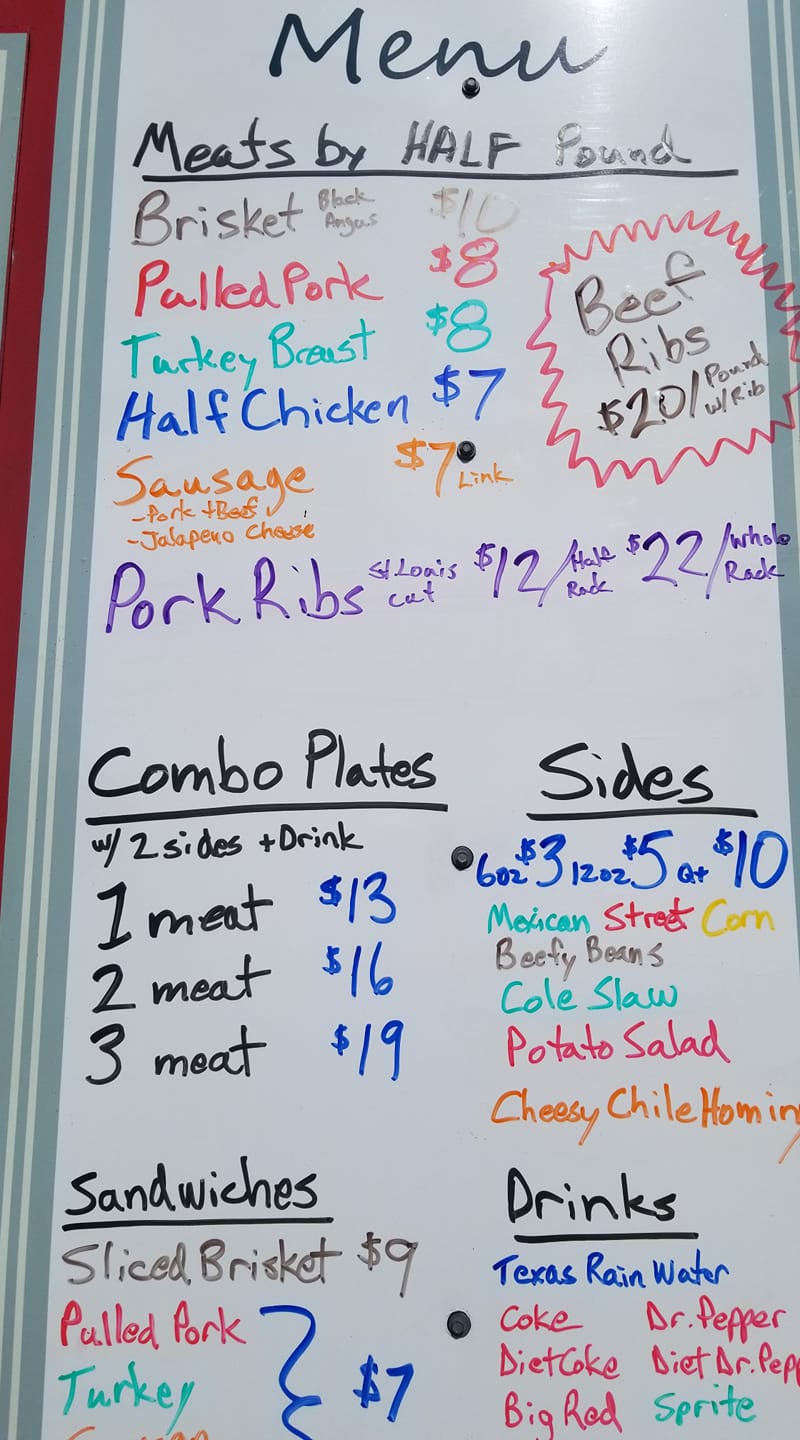 Menu
Meats by HALF Pound
Brisket Black Angus $10
Pulled Pork $8
Turkey Breast $8
Half Chicken $7
Sausage $7 Link
-Pork + Beef
-Jalapeno Cheese
Pork Ribs St Louis cut $12/Half Rack $22/Whole Rack
Beef
Ribs
$20/Pound w/Rib
Combo Plates
w/ 2 sides + Drink
1 meat $13
2 meat $16
3 meat $19
Sides
6oz $3 12oz $5 Qt $10
Mexican Street Corn
Beefy Beans
Cole Slaw
Potato Salad
Cheesy Chile Homin
Sandwiches
Sliced Brisket $9
Pulled Pork
Turkey $7
Drinks
Texas Rain Water
Coke Dr. Pepper
Diet Coke Diet Dr. Pepp
Big Red Sprite